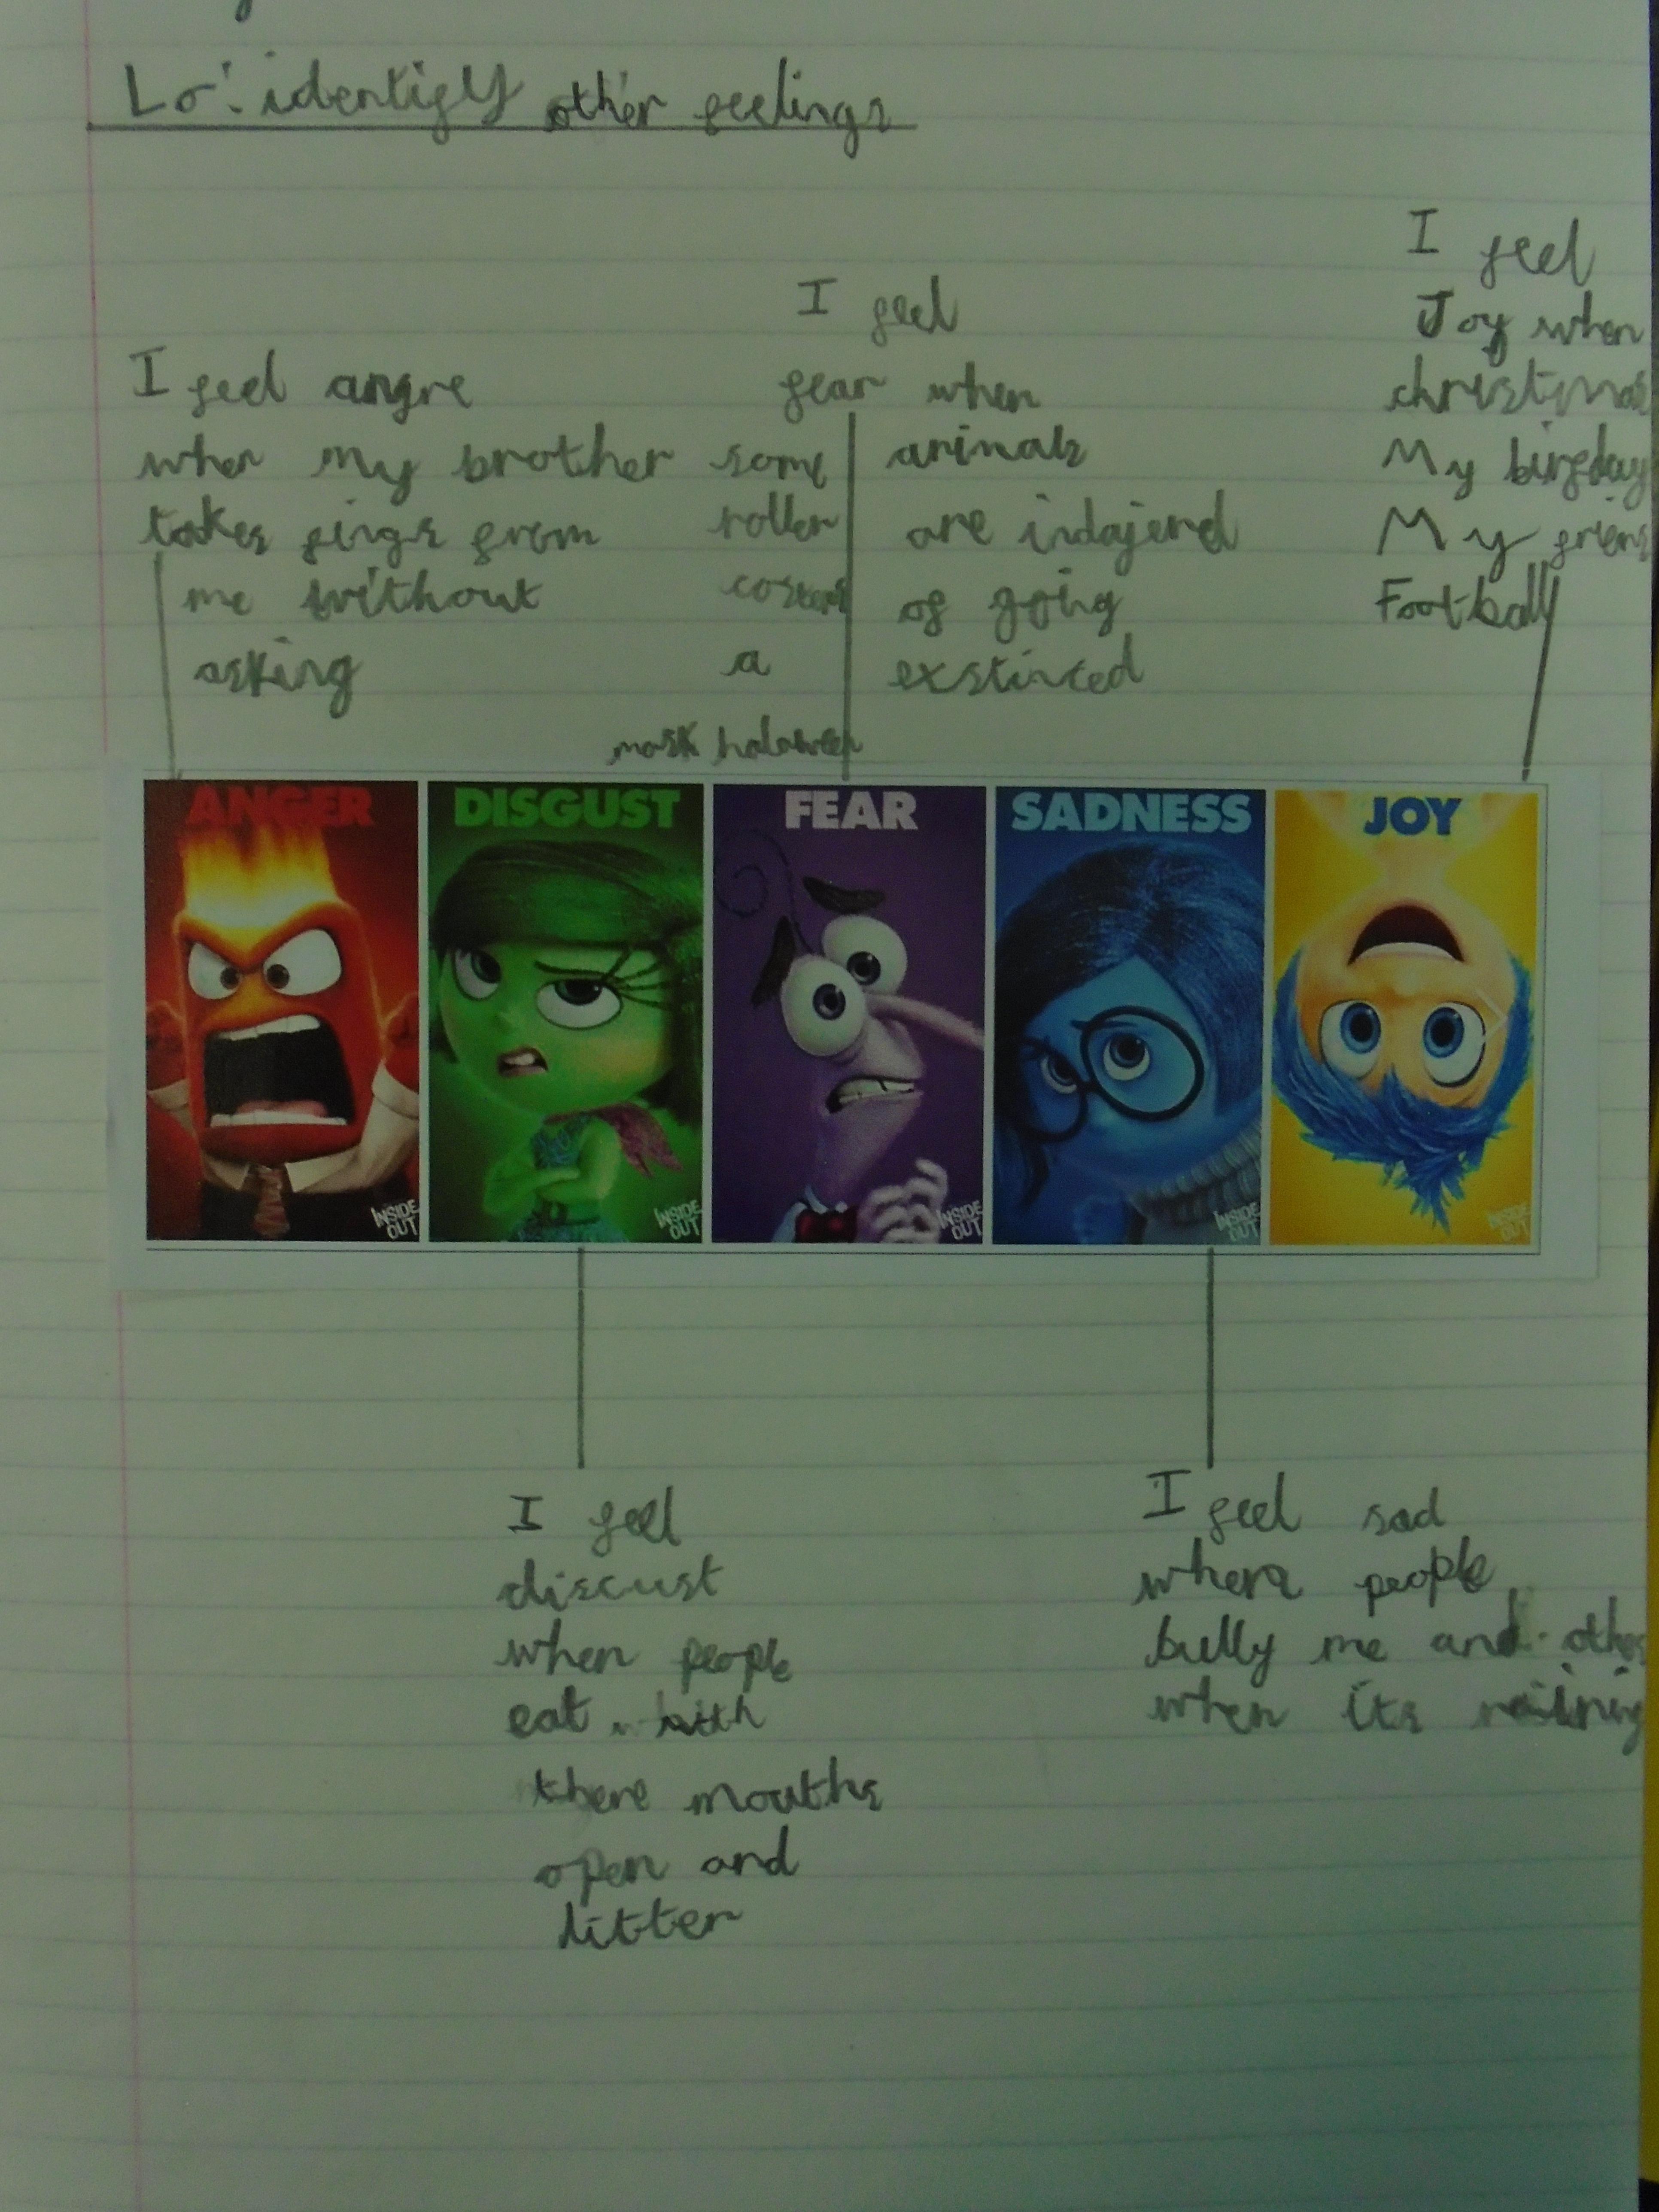 Lo: identify other feelings
I feel angre
when my brother
takes fings from
me without
asking
I feel
fear when
some
roller
a
mask halaween
animals
are indajered
of going
exstinced
I feel
Joy when
christmas
My birfday
My
Football
ANGER
DISGUST
FEAR
SADNESS
JOY
INSIDE OUT
INSIDE OUT
INSIDE OUT
INSIDE OUT
INSIDE OUT
I feel
discust
when people
eat with
there mouths
open and
litter
I feel sad
when people
bully me and
when its raining